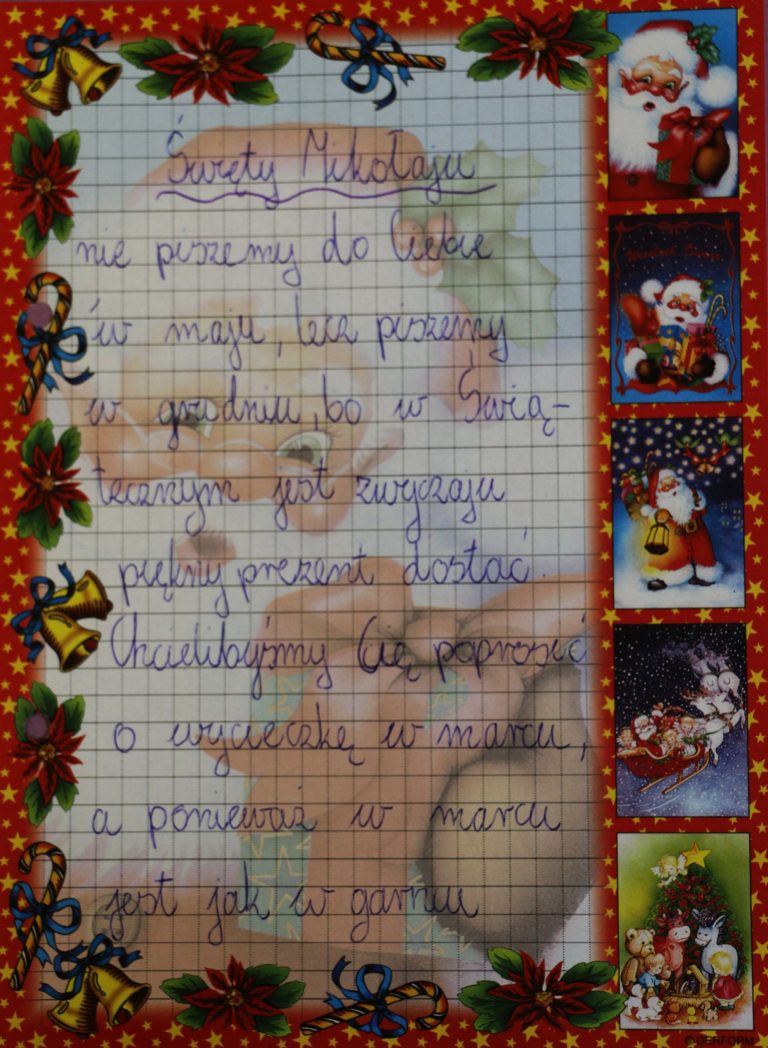 Święty Mikołaju
nie piszemy do Ciebie
w maju, lecz piszemy
w grudniu, bo w Świą-
tecznym jest zwyczaju
piękny prezent dostać.
Chcielibyśmy Cię poprosić
o wycieczkę w marcu,
a ponieważ w marcu
jest jak w garncu
© DERFORM